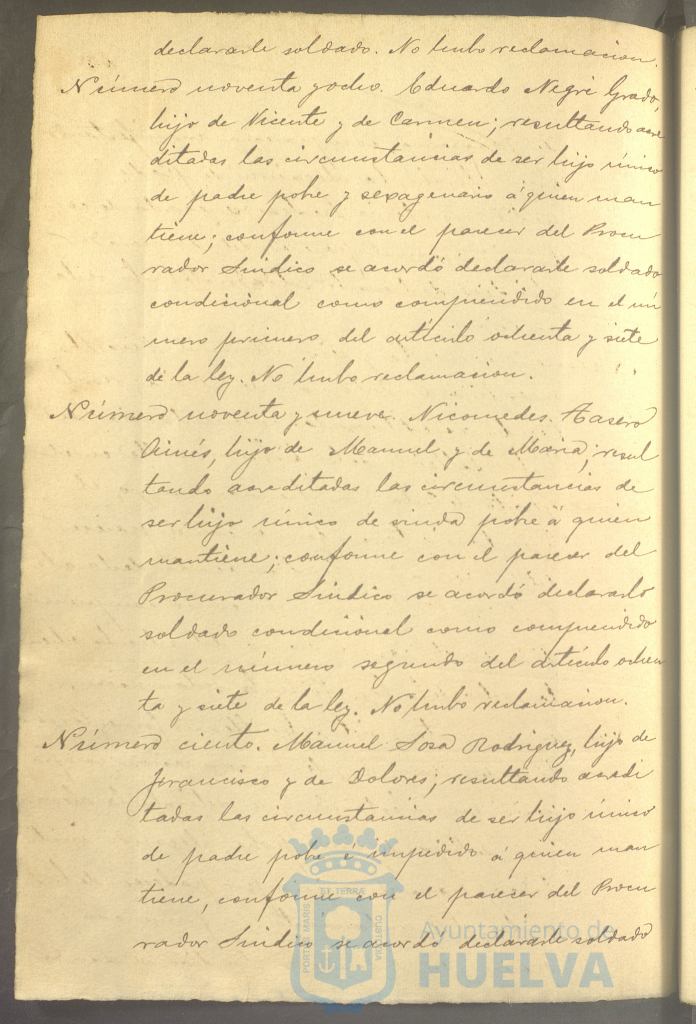 declararle soldado. No hubo reclamacion.
Número noventa y ocho. Eduardo Negri Grado,
hijo de Vicente y de Carmen; resultando acre
ditadas las circunstancias de ser hijo único
de padre pobre y sexagenario á quien man
tiene; conforme con el parecer del Procu
rador Sindico se acordó declararle soldado
condicional como comprendido en el nú
mero primero del artículo ochenta y siete
de la ley. No hubo reclamacion.
Número noventa y nueve. Nicomedes
hijo de Manuel y de Maria; resul
tando acreditadas las circunstancias de
ser hijo único de viuda pobre á quien
mantiene; conforme con el parecer del
Procurador Sindico se acordó declararlo
soldado condicional como comprendido
en el número segundo del artículo ochen
ta y siete de la ley. No hubo reclamacion.
Número ciento. Manuel Sosa Rodriguez, hijo de
Francisco y de Dolores; resultando acredi
tadas las circunstancias de ser hijo único
de padre pobre é impedido á quien man
tiene, conforme con el parecer del Procu
rador Sindico se acordó declararle soldado
PORTUS MARIS ET TERRAE CUSTODIA
Ayuntamiento de
HUELVA